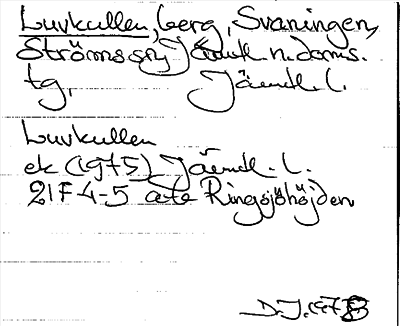 Luvkullen, berg, Svaningen,
Ströms sn, Jämtl. n. doms.
tg, Jämtl. l.
Luvkullen
ek (1975) Jämtl. l.
21F 4-5 a+e Ringsjöhöjden
D.J. 1978